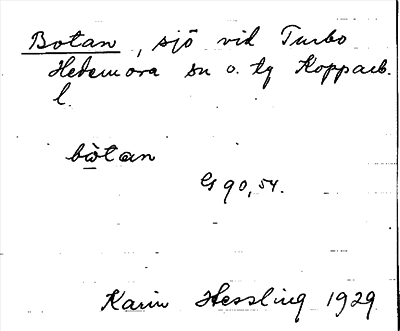 Botan, sjö vid Turbo
Hedemora sn o. tg Kopparb.
l.
bòtan
G 90, 54.
Karin Hessling 1929